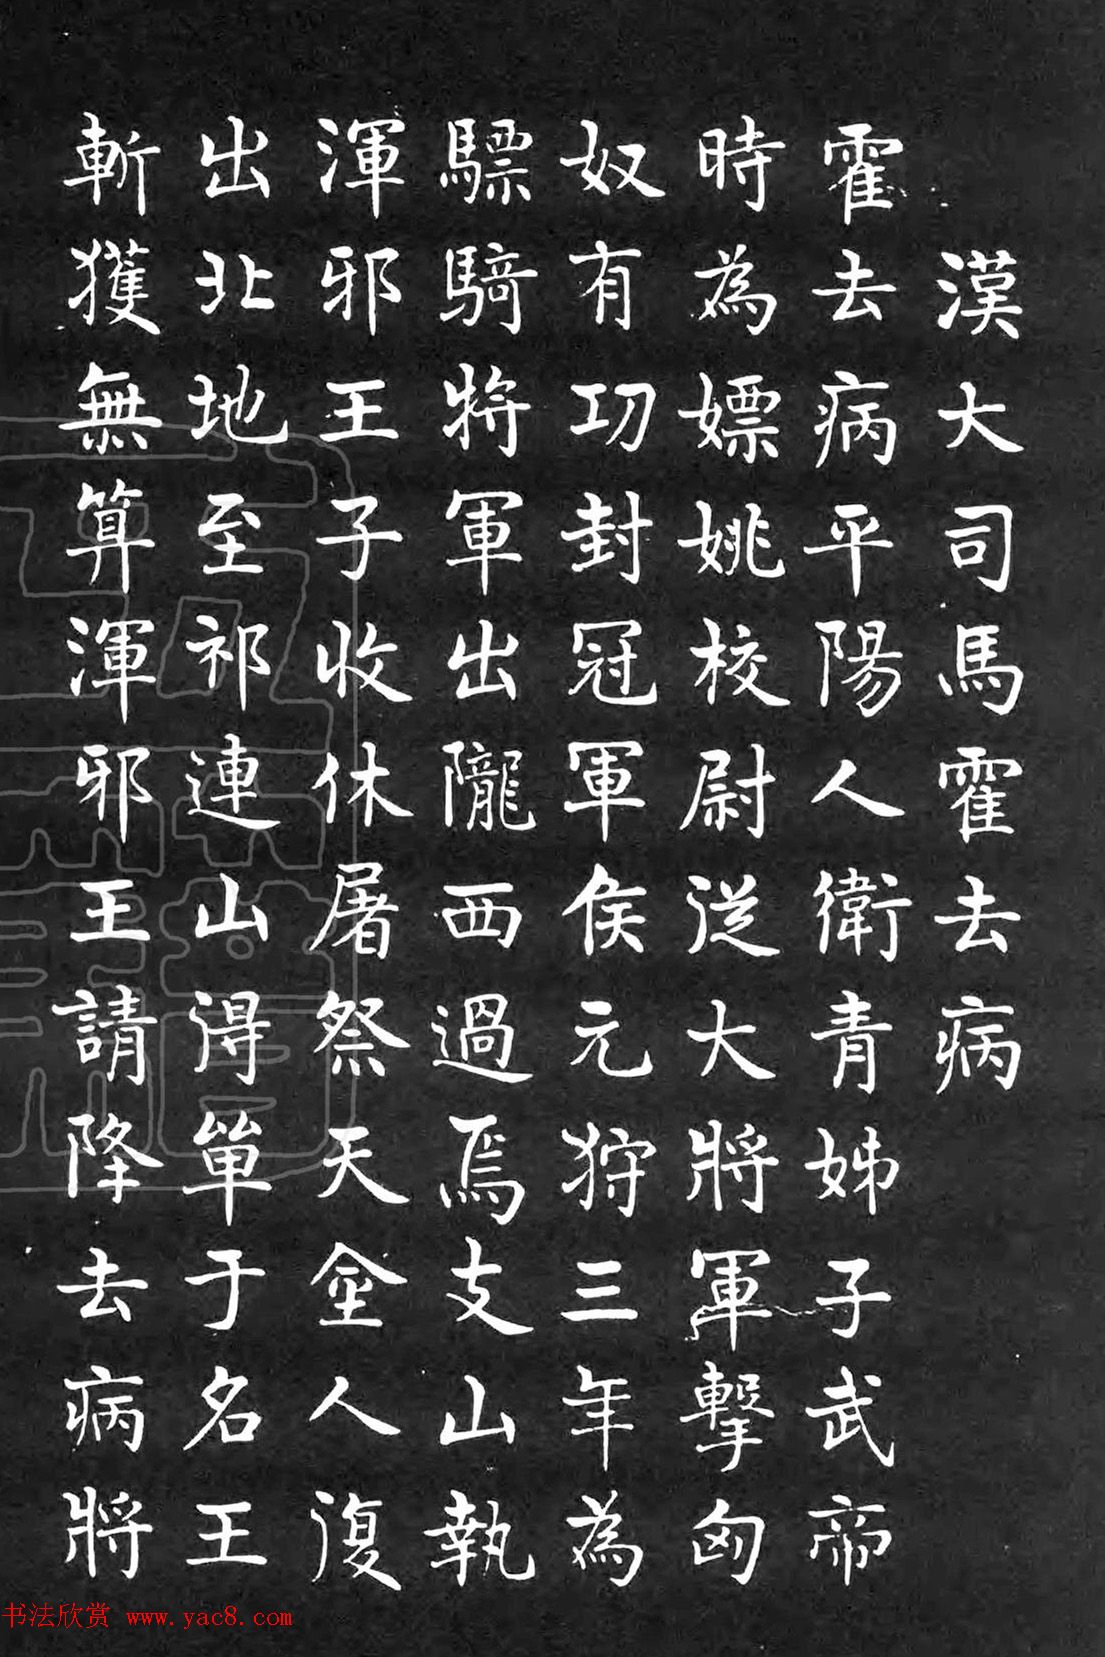 漢大司馬霍去病
霍去病平陽人衛青姊子武帝
時為嫖姚校尉從大將軍擊匈
奴有功封冠軍侯元狩三年為
驃騎將軍出隴西過焉支山執
渾邪王子收休屠祭天金人復
出北地至祁連山得單于名王
斬獲無算渾邪王請降去病將
书法欣赏 www.yac8.com